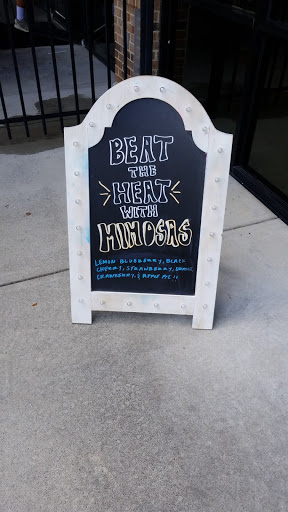 BEAT
THE
HEAT
WITH
MIMOSAS
LEMON BLUEBERRY, BLACK
CHERRY, STRAWBERRY,
CRANBERRY, & APPLE PIE!!